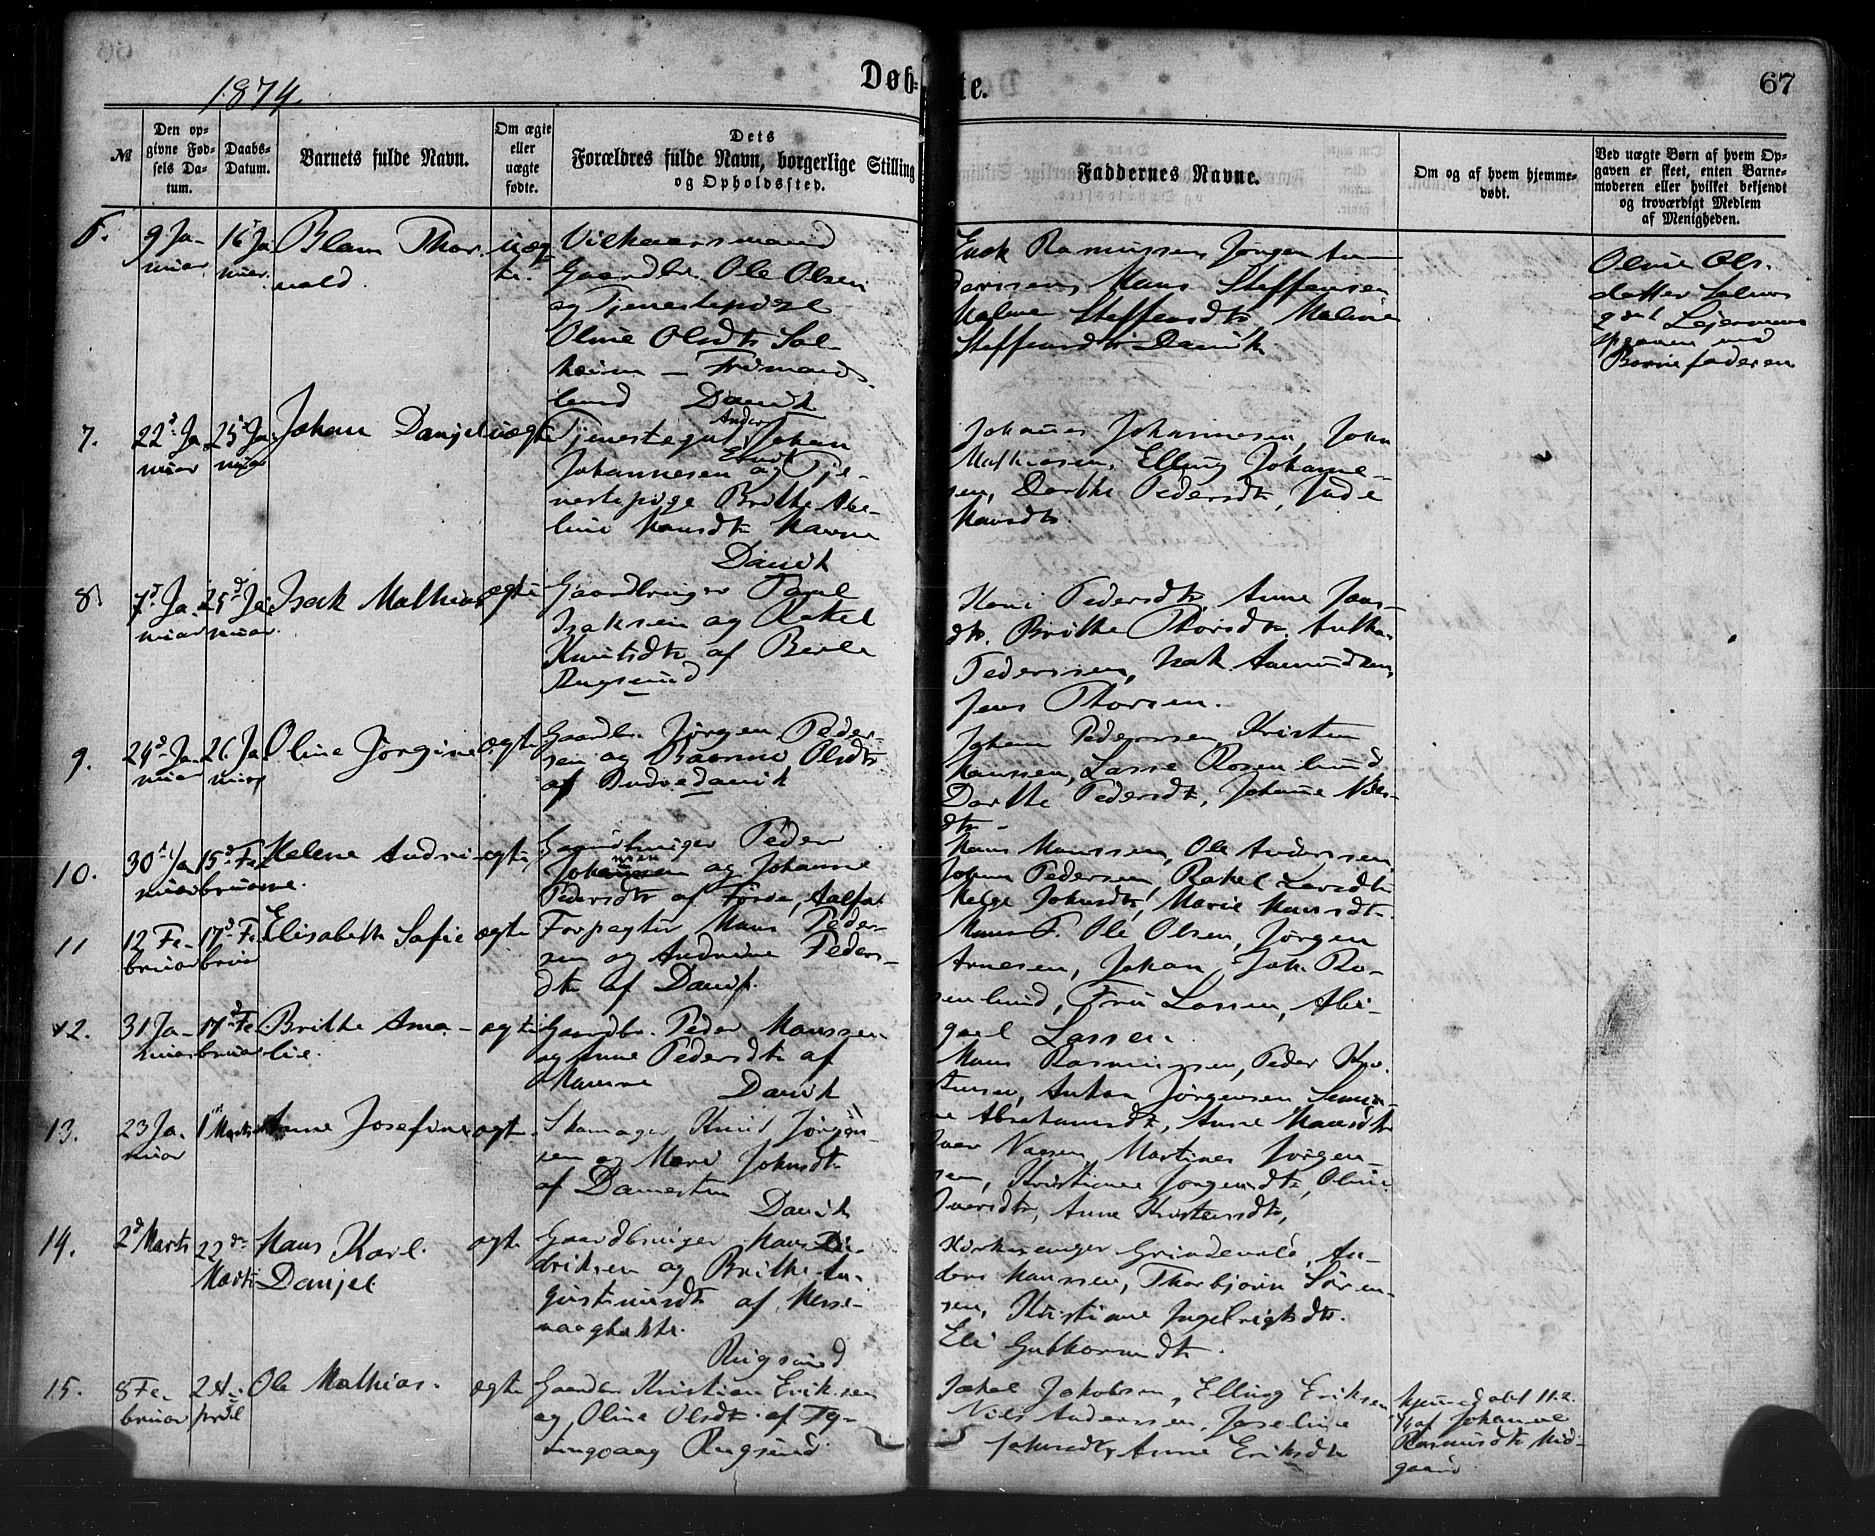 1874.
Døb-
te.
67
№
Den op-
givne Fød-
sels Da-
tum.
Daabs-
Datum.
Barnets fulde Navn.
Om ægte
eller
uægte
fødte.
Dets
Forældres fulde Navn, borgerlige Stilling
og Opholdssted.
Faddernes Navne.
Om og af hvem hjemme-
døbt.
Ved uægte Børn af hvem Op-
gaven er skeet, enten Barne-
moderen eller hvilket bekjendt
og troværdigt Medlem
af Menigheden.
6.
9 Ja-
nuar
16 Ja
nuar.
Thor-
vald.
uæg
te.
Gaardbr. Ole Olsen
og Tjenestepige
Oline Olsdtr Sol-
heim
Davik
Rasmussen Jørgen An
derssen, Hans Steffensen
Malene Steffensdtr, Maline
Steffensdtr Davik
Oline Ols-
datter
Barnefaderen
7.
22d Ja
nuar
25d Ja
nuar
Johan Danjel
uægte
Tjenestegut Johan
Johannesen og Tje-
nestepige Brithe Abe-
line Hansdtr Havne
Davik
Johannes Johannesen, John
Mathiasen, Elling Johanne-
sen, Dorthe Pedersdtr,
Hansdtr
8.
7d Ja
nuar
25d Ja
nuar.
Isak Mathias
ægte
Gaardbruger Paul
Isaksen og Rakel
Knutsdtr af Berle
Rugsund
Kari Pedersdtr, Anne Jens-
dtr. Brithe Thorsdtr. Anthon
Pederssen, Isak Aamundsen,
Jens Thorsen.
9.
24d Ja
nuar
26 Ja
nuar
Oline Jørgine
ægte
Gaardbr. Jørgen Peder-
sen og Rasmine Olsdtr
af Indre Davik
Johan Pederssen, Kristen
Hanssen, Lasse Rosenlund
Dorthe Pedersdtr, Johanne Niels-
dtr.
10.
30d Ja
nuar
15d Fe
bruar
Helene Andri-
ne.
ægte
Gaardbruger Peder
og Johanne
Pedersdtr af Førde, Aalfot
Hans Hanssen, Ole Anderssen,
Johan Pedersen, Rakel Larsdtr
Helge Johnsdtr, Marie Hansdtr.
11
12 Fe-
bruar
17d Fe
bruar
Elisabeth Sofie
ægte
Forpagter Hans Peder-
sen og Andrine Peders-
dtr af Davik.
Hans P. Ole Olsen, Jørgen
Arnesen, Johan Joh. Ro-
senlund, Fru Lassen, Abi-
gael Lassen.
12.
31 Ja-
nuar
17d Fe-
bruar
Brithe Ama-
lie.
ægte
Gaardbr. Peder Hanssen
og Anne Pedersdtr af
Hamne
Davik
Hans Rasmussen, Peder
Anton Jørgensen
Absalonsdtr, Anne Hansdtr
13.
23 Ja-
nuar
1st Marts
Anne Josefine
ægte
Skomager Knud Jørgen-
sen og Mari Johnsdtr
af Damestøen
Davik
Martines Jørgen-
sen, Kristiane Jørgensdtr, Oline
Iversdtr, Anne Kristensdtr,
14.
2d Marts
22de
Marts
Hans Karl
Danjel
ægte
Gaardbruger Hans Di-
driksen og Brithe Au-
gustinusdtr af
Rugsund
Kirkesanger Grindevold, An-
ders Hanssen, Thorbjørn Søren-
sen, Kristiane Ingebrigtsdtr.
Eli Guthormsdtr.
15.
8 Fe-
bruar
2 A-
pril
Ole Mathias.
ægte
Gaardbr Kristian Eriksen
og Oline Olsdtr af Ty-
tingvaag Rugsund
Jakob Jakobsen, Elling Eriksen
Nils Anderssen, Joseline
Johnsdtr, Anne Eriksdtr
hjemmedøbt 11.2.
74 af Johanne
Rasmusdtr Mid-
gaard